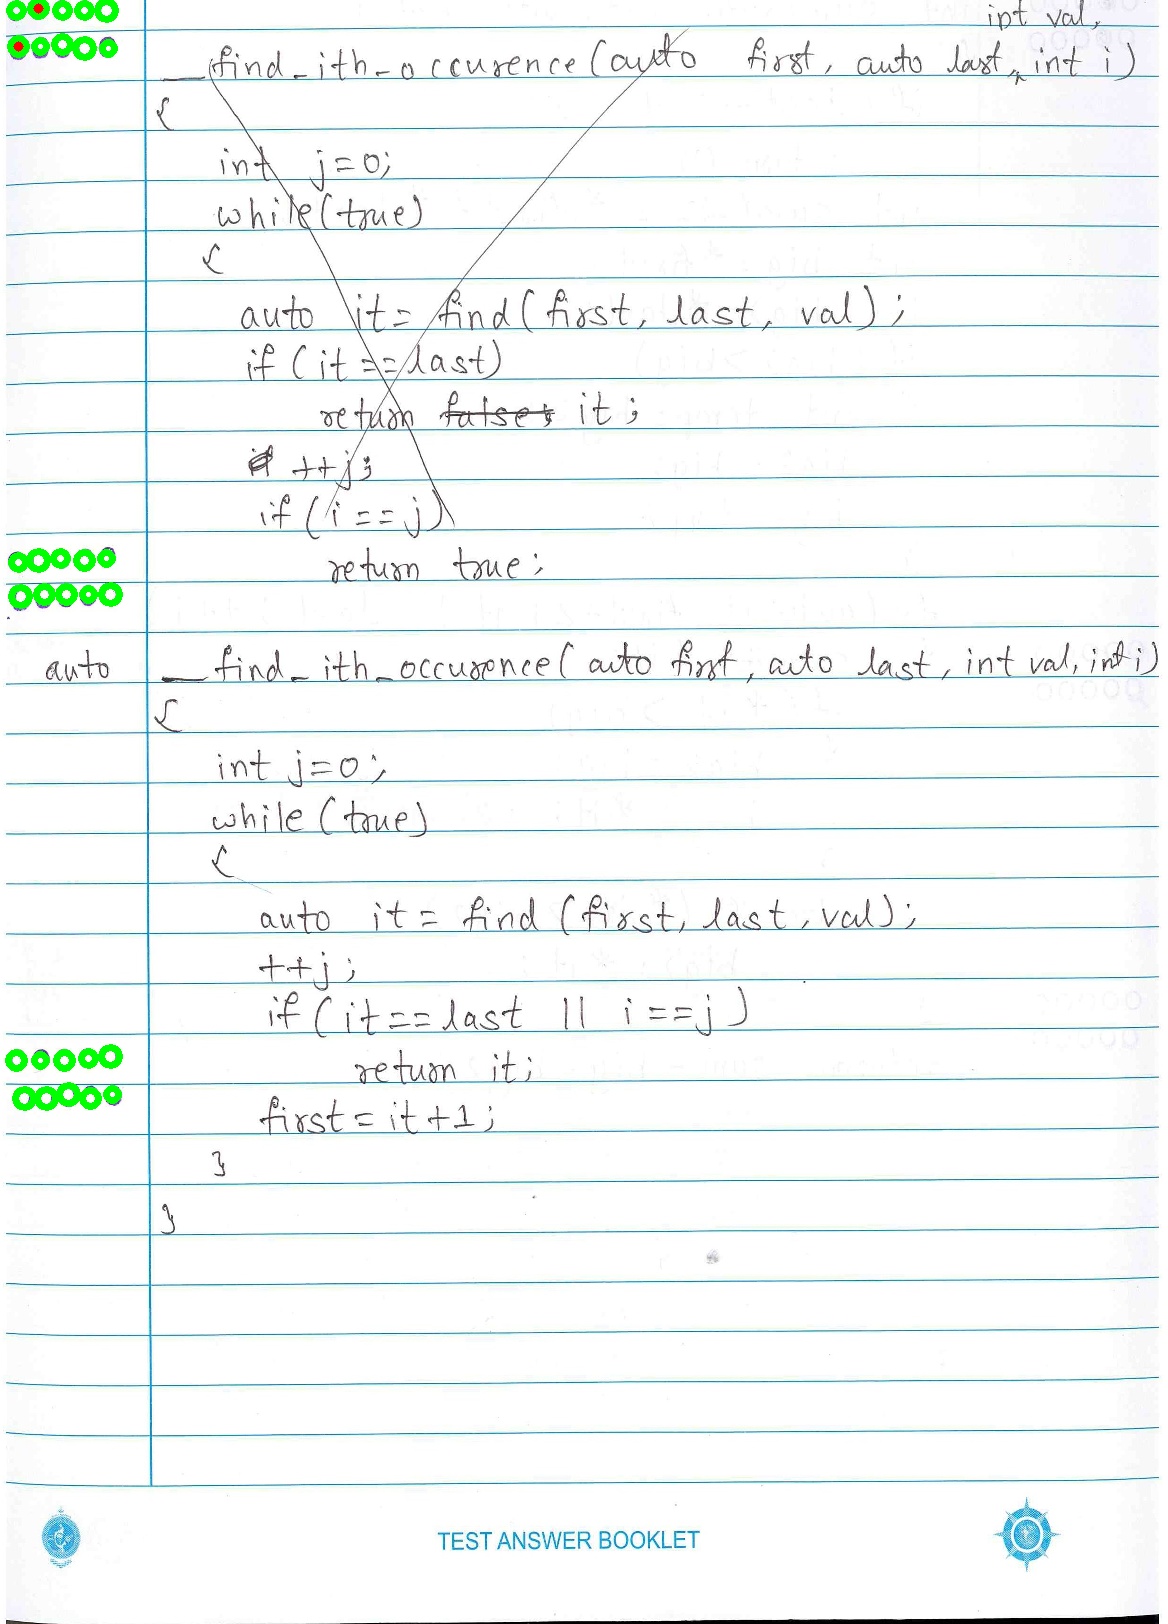 int val,
__find_ith_occurence(auto first, auto last, int i)
{
int j=0;
while(true)
{
auto it= find(first, last, val);
if (it==last)
return false; it;
++j;
if (i==j)
return true;
auto __find_ith_occurence( auto first, auto last, int val, int i)
{
int j=0;
while (true)
{
auto it= find (first, last, val);
++j;
if (it==last || i==j)
return it;
first=it+1;
}
}
TEST ANSWER BOOKLET